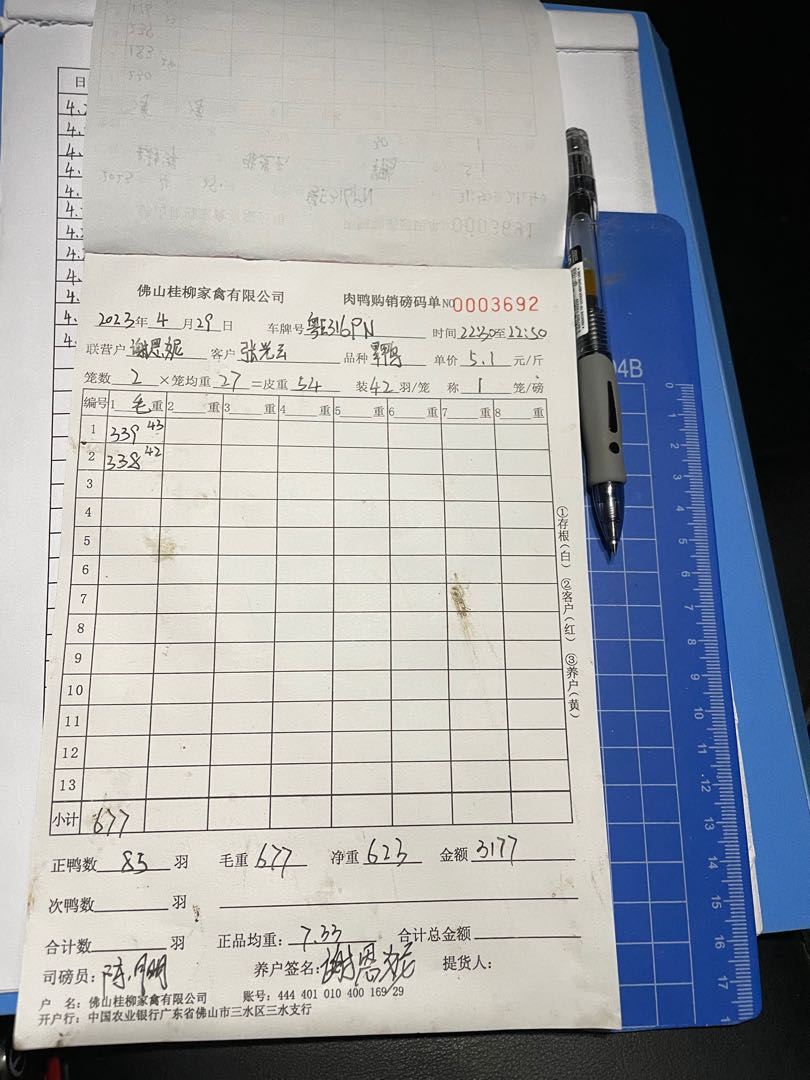 佛山桂柳家禽有限公司 肉鸭购销磅码单 NO 0003692
2023年 4 月 29 日 车牌号 粤E316PN 时间 22:30至22:50
联营户 谢恩妮 客户 张光云 品种 单价 5.1 元/斤
笼数 2 ×笼均重 27 =皮重 54 装 42 羽/笼 称 1 笼/磅
编号 1 毛重 2 重 3 重 4 重 5 重 6 重 7 重 8 重
1 339 43
2 338 42
3
4
5
6
7
8
9
10
11
12
13
小计 677
①存根(白) ②客户(红) ③养户(黄)
正鸭数 85 羽 毛重 677 净重 623 金额 3177
次鸭数 羽
合计数 羽 正品均重: 7.33 合计总金额
司磅员: 陈 养户签名: 谢恩妮 提货人:
户 名: 佛山桂柳家禽有限公司 账号: 444 401 010 400 169 29
开户行: 中国农业银行广东省佛山市三水区三水支行
日
4.
4.
4.
4.
4.
4.
4.
4.
4.
4.
4.
4.
04B
0 1 2 3 4 5 6 7 8 9 10 11 12 13 14 15 16 17